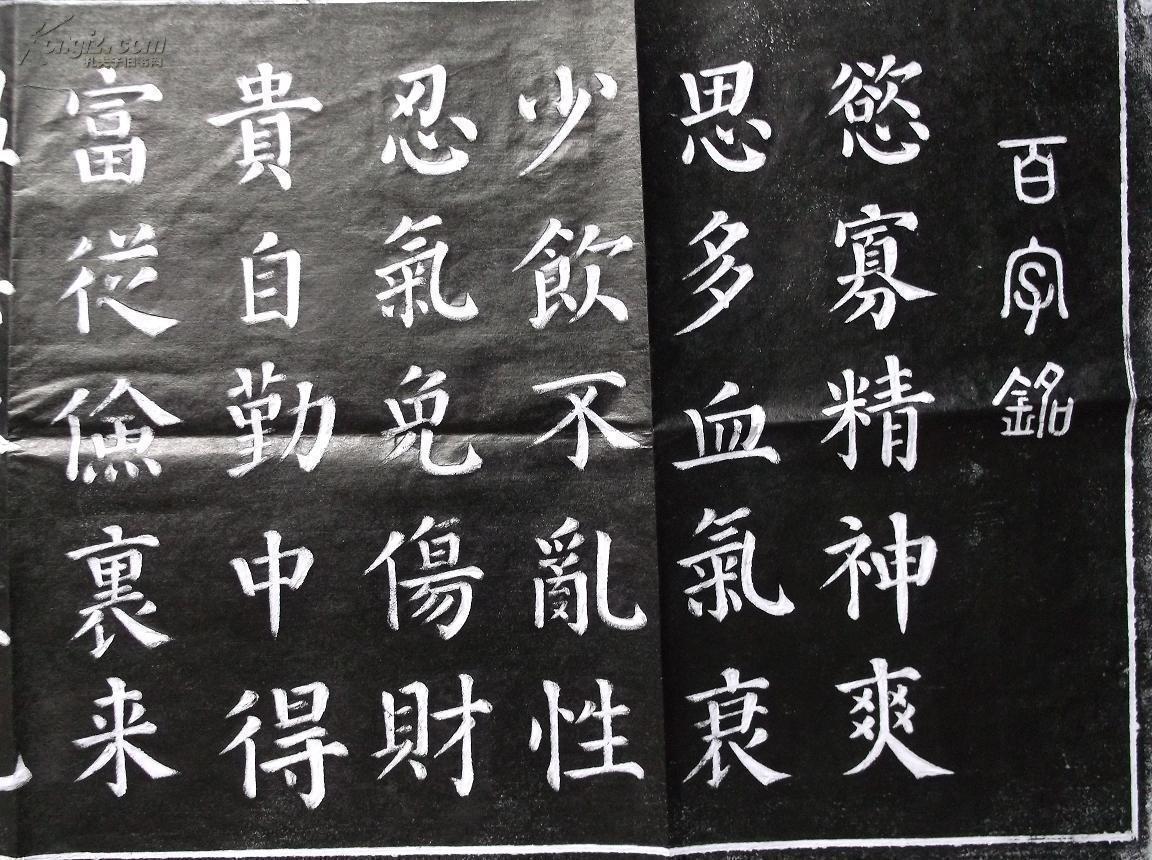 百字銘
慾寡精神爽
思多血氣衰
少飲不亂性
忍氣免傷財
貴自勤中得
富従儉裏来
Kongfz.com
孔夫子旧书网